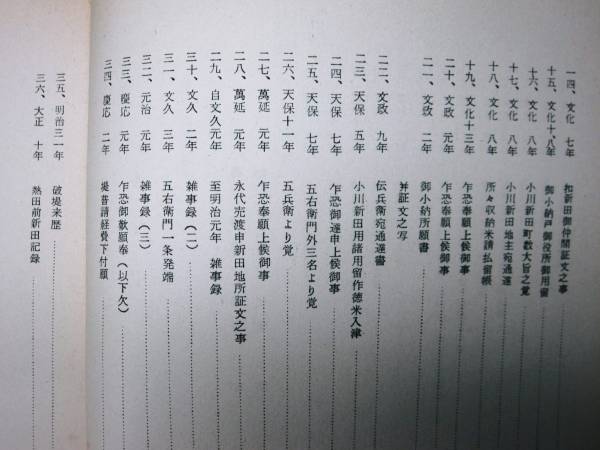 一四、文化 七年 和新田御仲間証文之事
十五、文化十、八年 御小納戸御役所御用留
十六、文化 八年 小川新田町数大旨之覚
十七、文化 八年 小川新田地主宛通達
十八、文化 八年 所々収納米請払留帳
十九、文化十三年 乍恐奉願上候御事
二十、文政 元年 乍恐奉願上候御事
二一、文政 二年 御小納所願書
并証文之写
二二、文政 九年 伝兵衛宛通達書
二三、天保 五年 小川新田用諸用留作徳米入津
二四、天保 七年 乍恐御達申上候御事
二五、天保 七年 五右衛門外三名より覚
二六、天保十一年 五兵衛より覚
二七、萬延 元年 乍恐奉願上候御事
二八、萬延 元年 永代売渡申新田地所証文之事
二九、自文久元年 至明治元年 雑事録
三十、文久 二年 雑事録(二)
三一、文久 三年 五右衛門一条発端
三二、元治 元年 雑事録(三)
三三、慶応 元年 乍恐御歎願奉(以下欠)
三四、慶応 二年 堤普請経費下付願
三五、明治三一年 破堤来歴
三六、大正 十年 熱田前新田記録